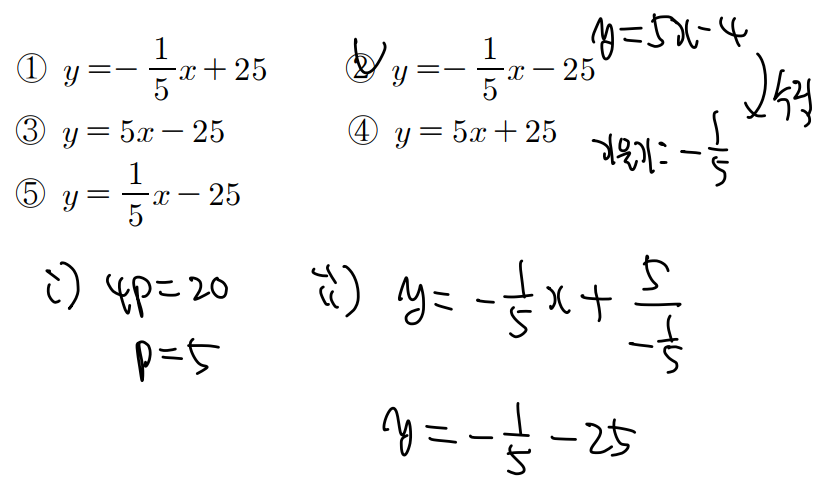 ① y=-1/5x+25 ② y=-1/5x-25
③ y=5x-25 ④ y=5x+25
⑤ y=1/5x-25
y=5x-4
수직
기울기:-1/5
i) 4p=20
p=5
ii) y=-1/5x+5/(-1/5)
y=-1/5-25